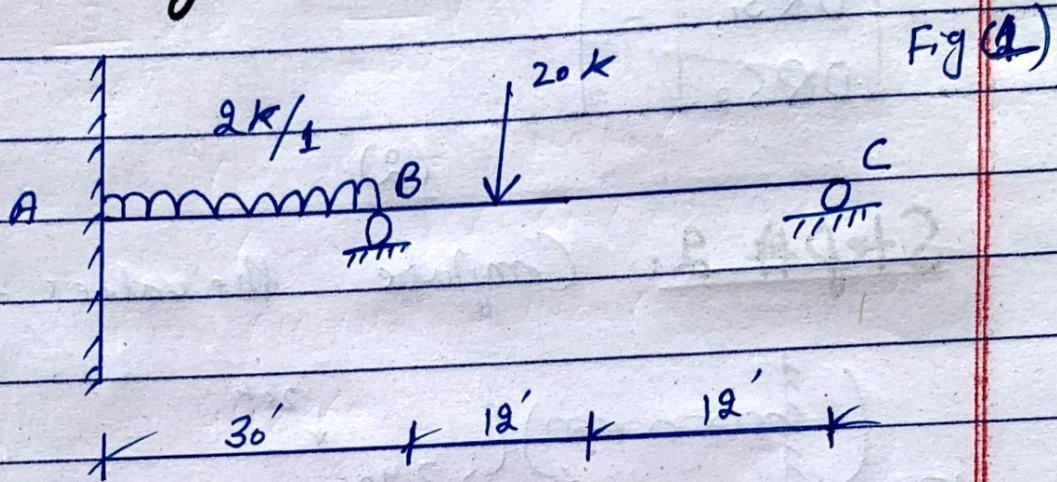 Fig (1)
20 k
2k/1
A
B
C
30'
12'
12'